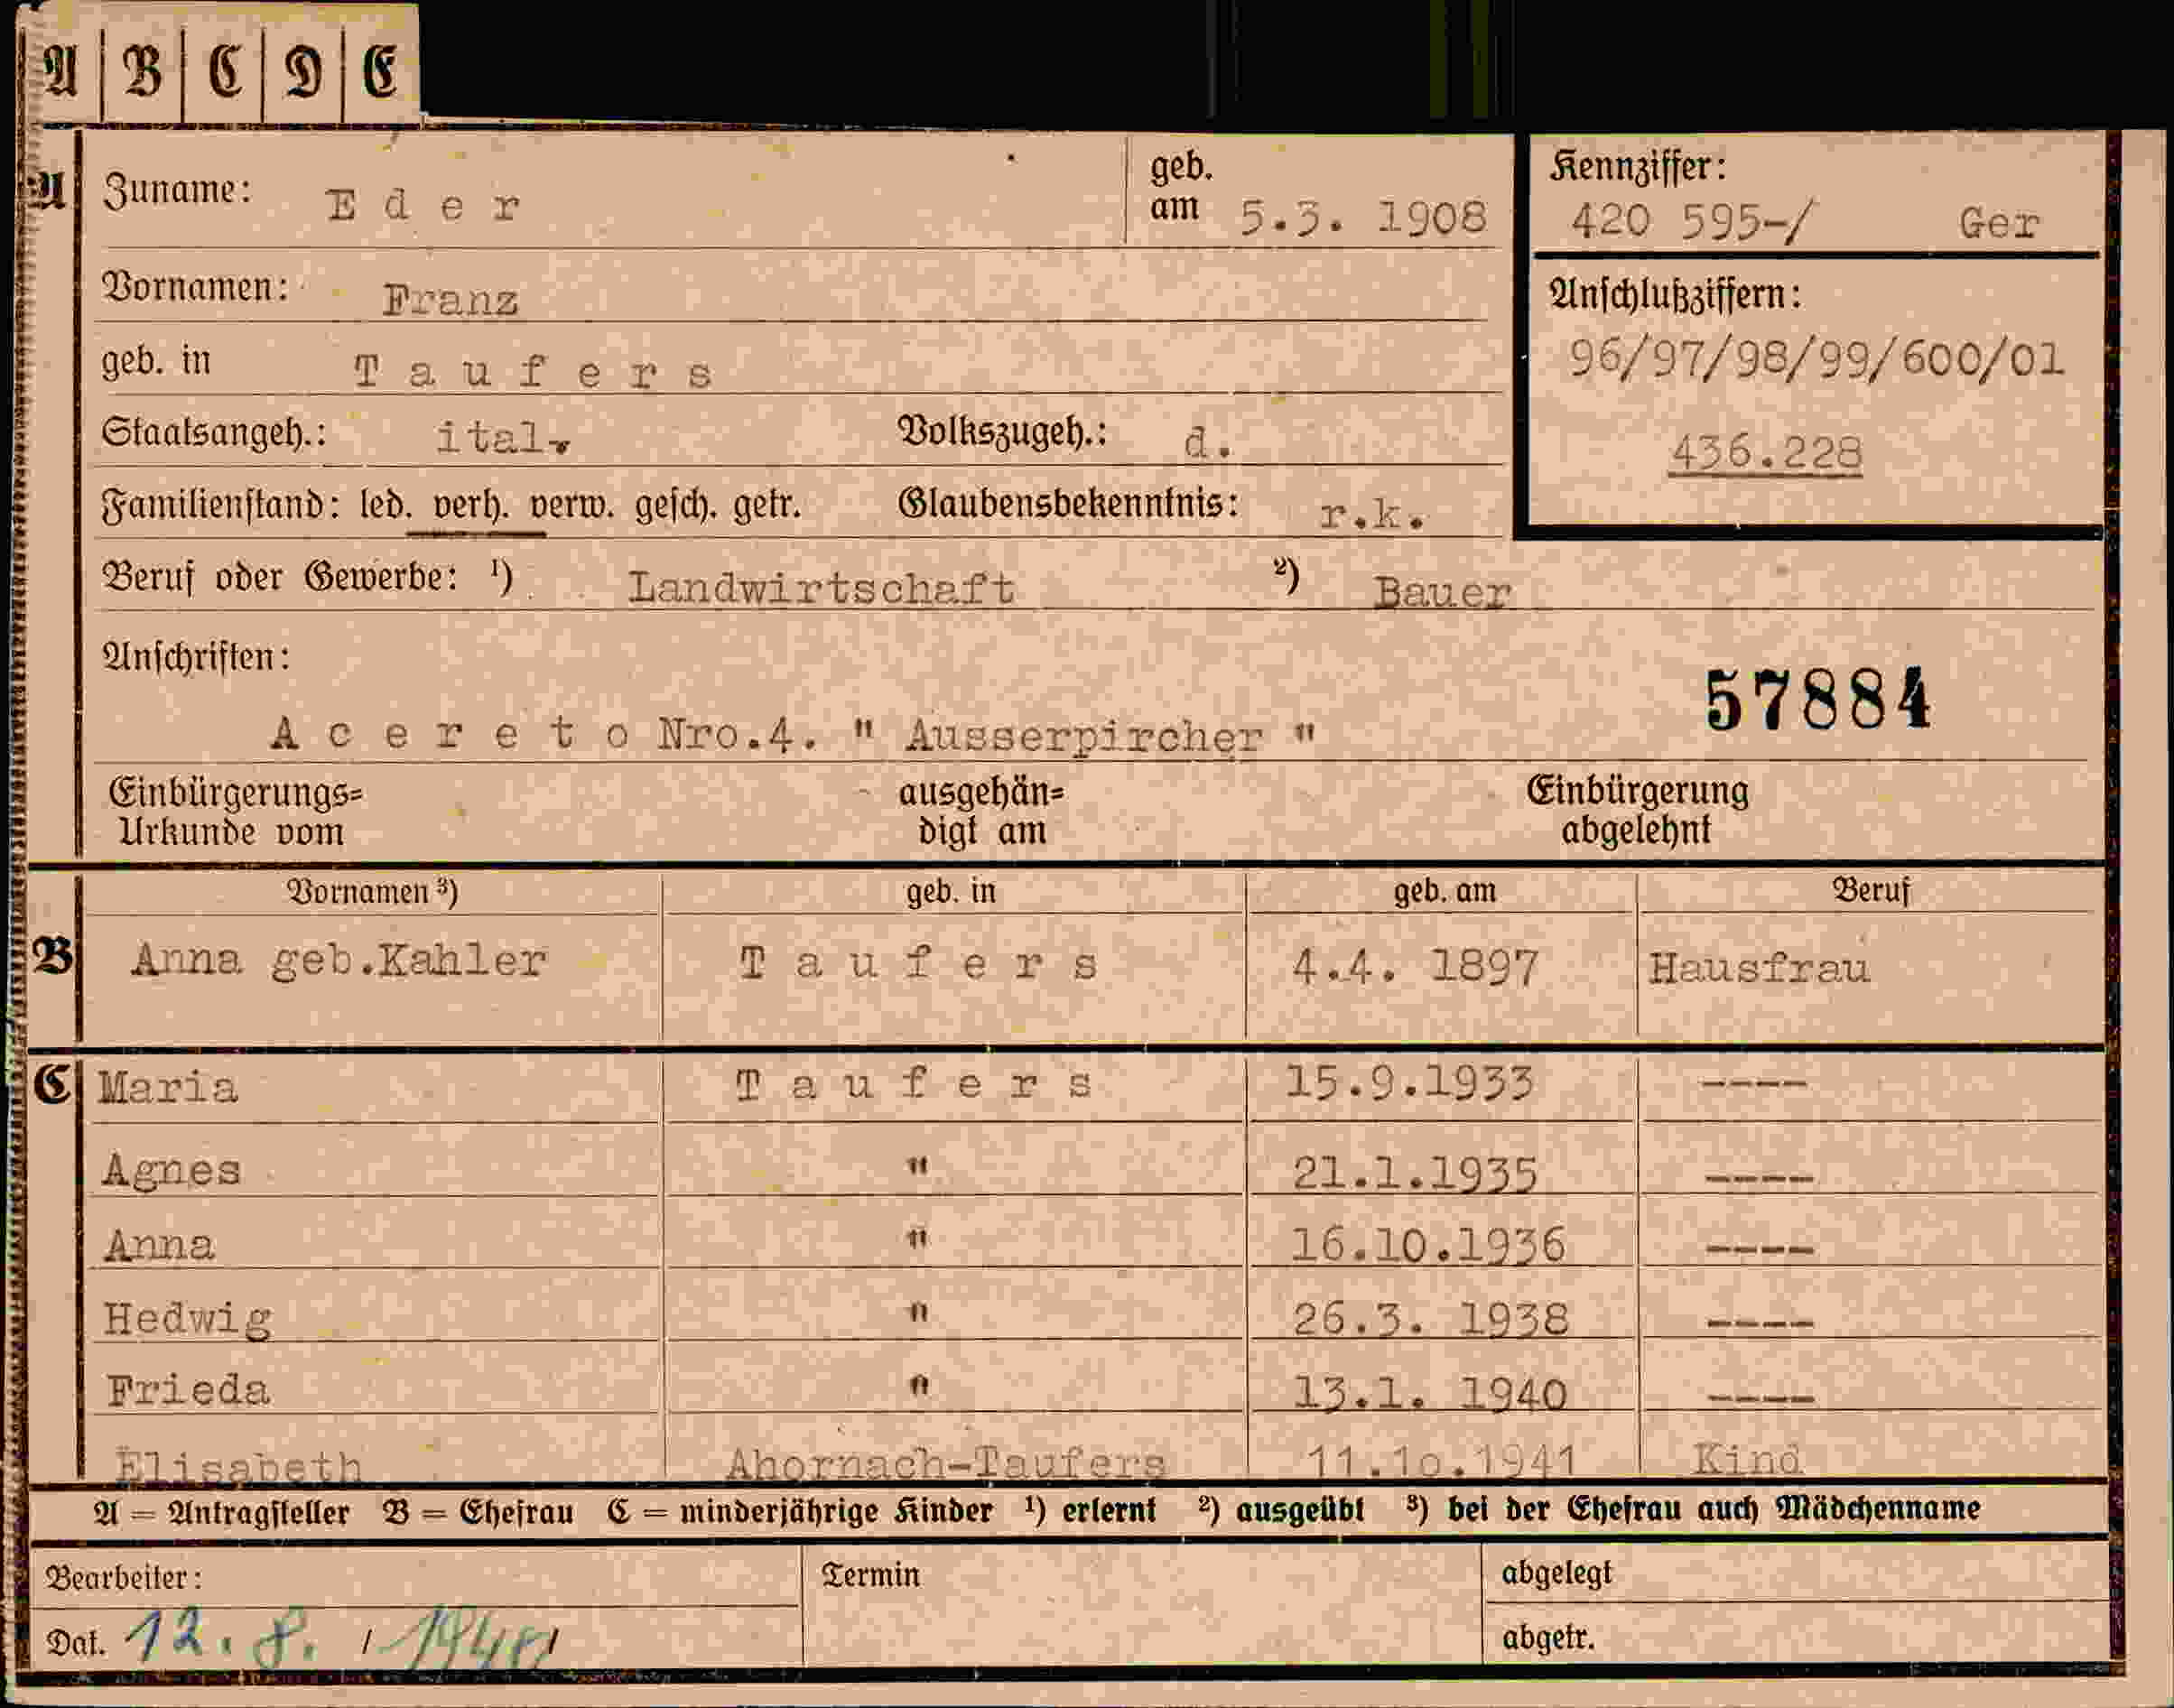 A B C D E
A Zuname: Eder geb. am 5.3. 1908
Kennziffer:
420 595-/ Ger
Vornamen: Franz
Anschlußziffern:
96/97/98/99/600/01
436.228
geb. in Taufers
Staatsangeh.: ital. Volkszugeh.: d.
Familienstand: led. verh. verw. gesch. getr. Glaubensbekenntnis: r.k.
Beruf oder Gewerbe: ¹) Landwirtschaft ²) Bauer
Anschriften:
57884
Acereto Nro.4. " Ausserpircher "
Einbürgerungs= ausgehän= Einbürgerung
Urkunde vom digt am abgelehnt
Vornamen ³) geb. in geb. am Beruf
B Anna geb.Kahler Taufers 4.4. 1897 Hausfrau
C Maria Taufers 15.9.1933 ----
Agnes " 21.1.1935 ----
Anna " 16.10.1936 ----
Hedwig " 26.3. 1938 ----
Frieda " 13.1. 1940 ----
Elisabeth Ahornach-Taufers 11.10.1941 Kind
A = Antragsteller B = Ehefrau C = minderjährige Kinder ¹) erlernt ²) ausgeübt ³) bei der Ehefrau auch Mädchenname
Bearbeiter: Termin abgelegt
Dat. 12. 8. abgetr.